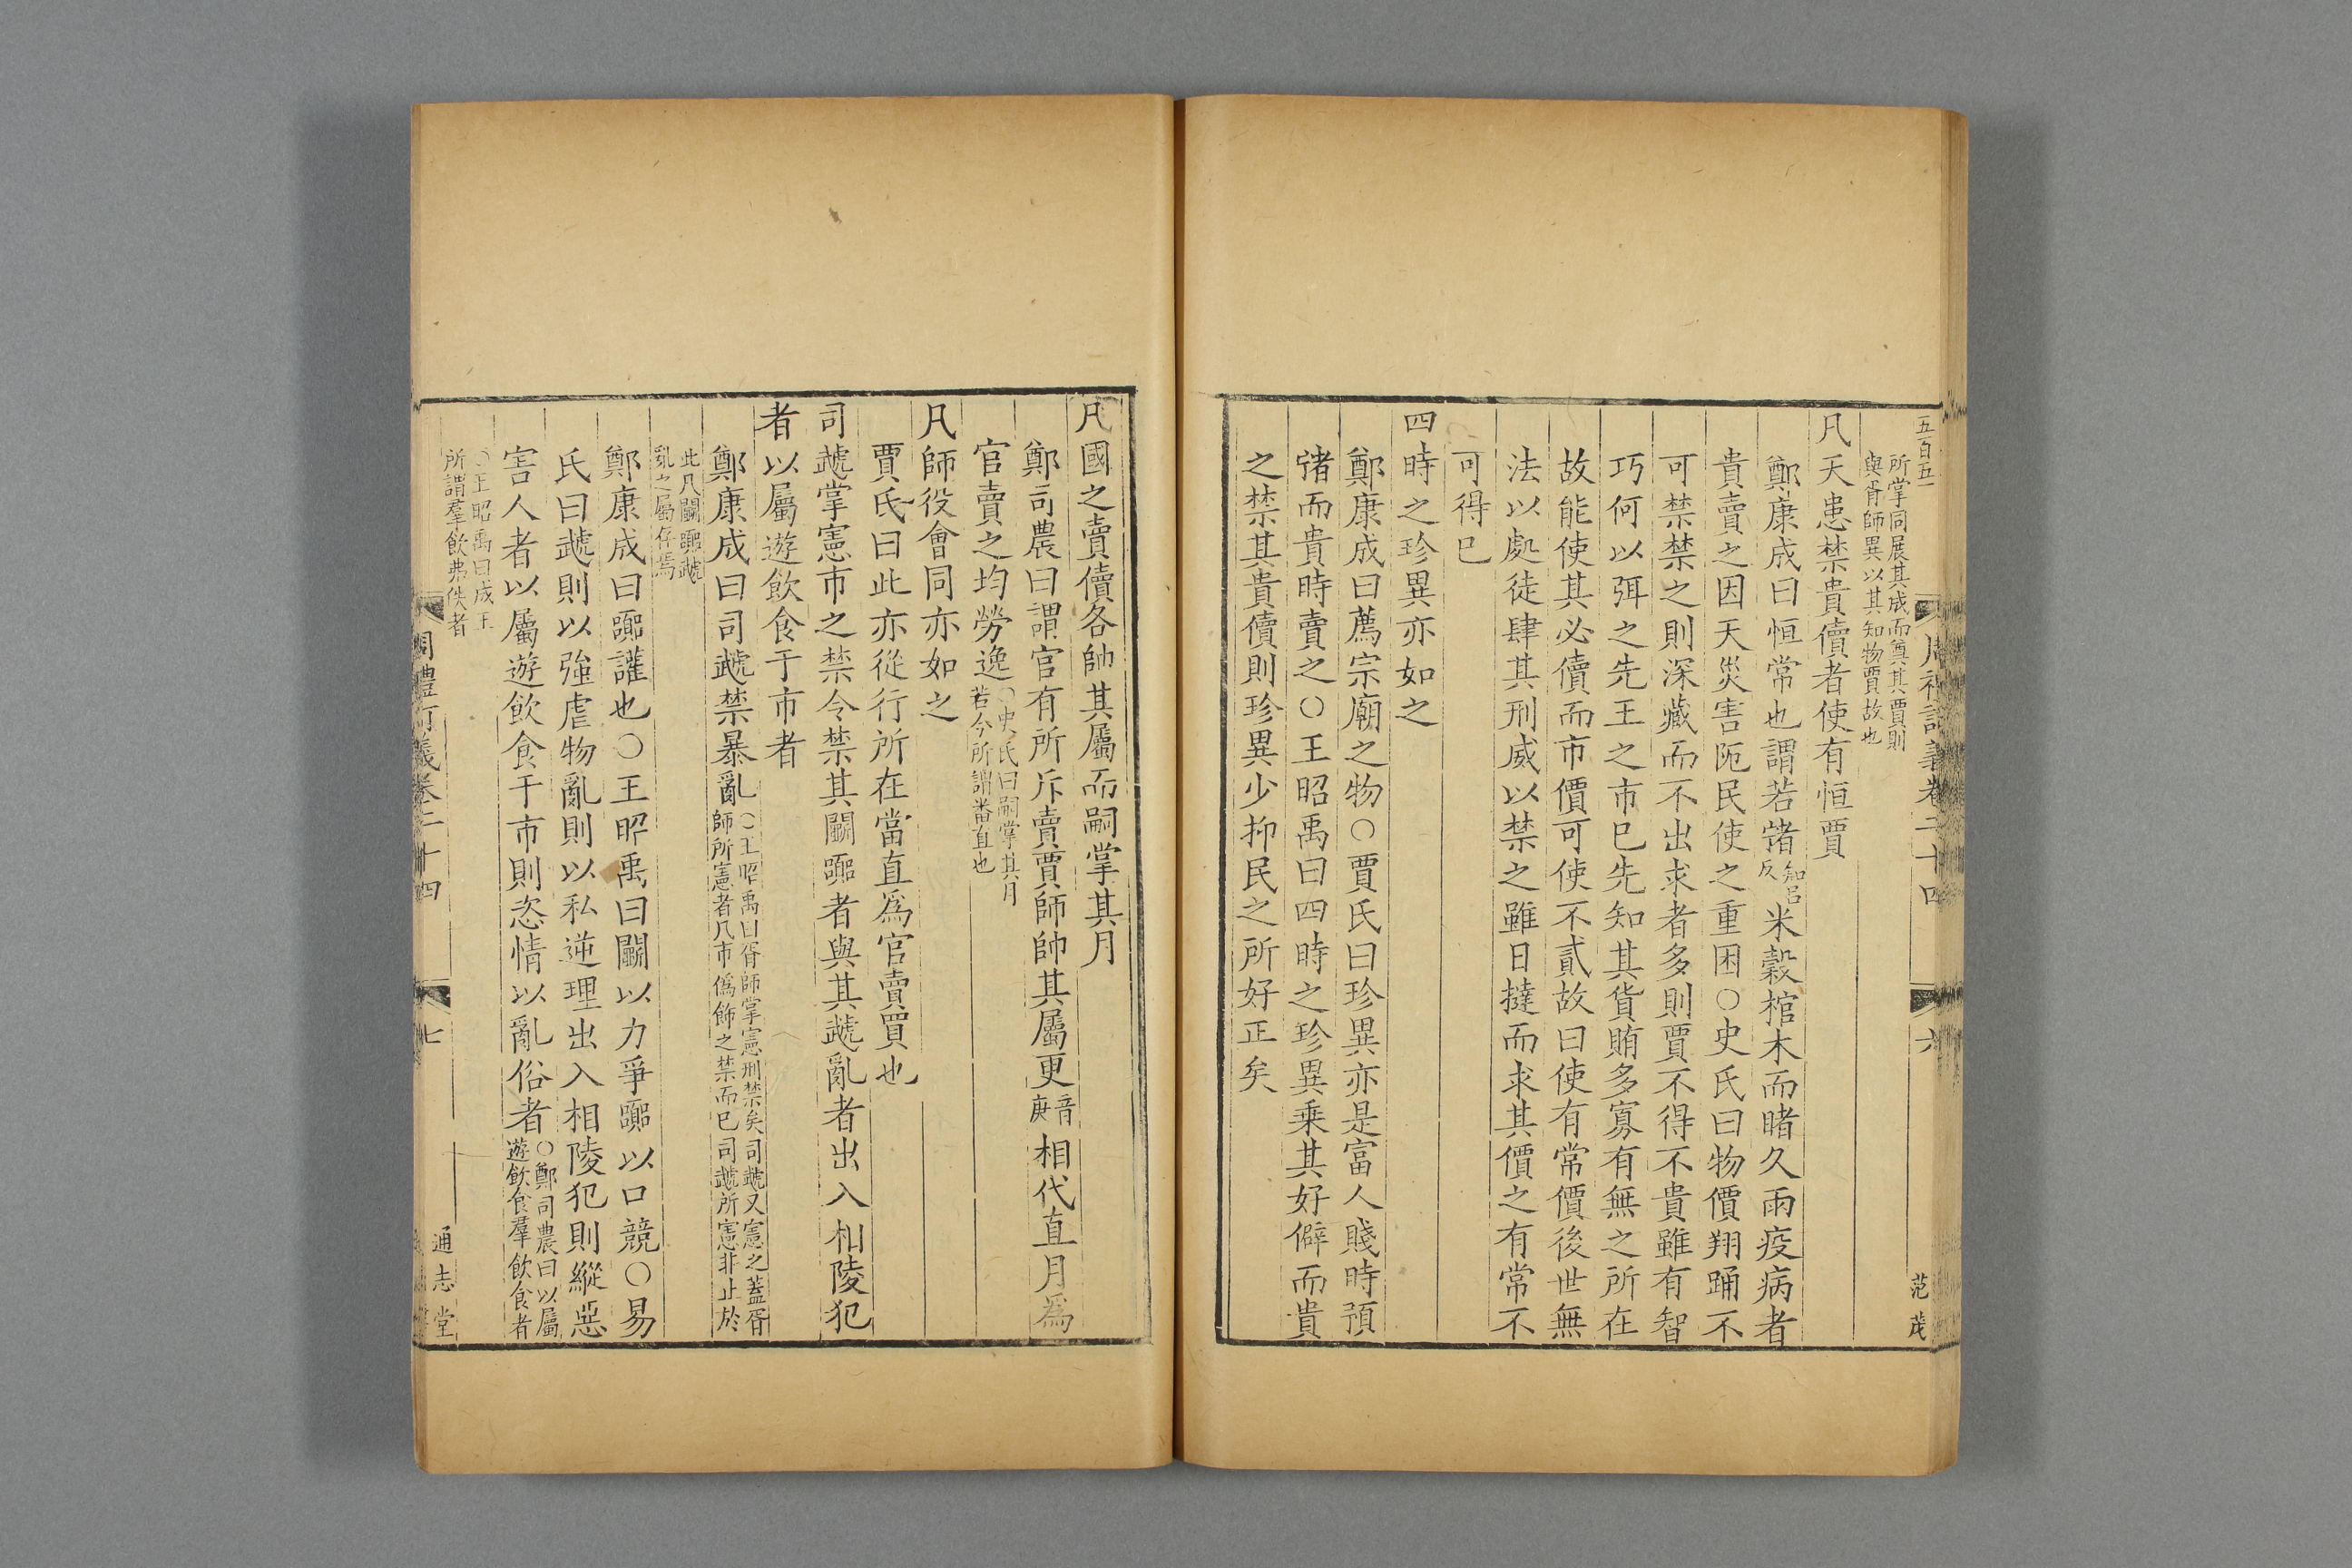 五百五
周禮訂義卷二十四
六
范茂
所掌同展其成而奠其賈則
與胥師異以其知物賈故也
凡天患禁貴儥者使有恒賈
鄭康成曰恒常也謂若䐗知呂反米穀棺木而睹久雨疫病者
貴賣之因天災害阨民使之重困○史氏曰物價翔踊不
可禁禁之則深藏而不出求者多則賈不得不貴雖有智
巧何以弭之先王之市已先知其貨賄多寡有無之所在
故能使其必儥而市價可使不貳故曰使有常價後世無
法以處徒肆其刑威以禁之雖日撻而求其價之有常不
可得已
四時之珍異亦如之
鄭康成曰薦宗廟之物○賈氏曰珍異亦是富人賤時預
䐗而貴時賣之○王昭禹曰四時之珍異乘其好僻而貴
之禁其貴儥則珍異少抑民之所好正矣
凡國之賣儥各帥其屬而嗣掌其月
鄭司農曰謂官有所斥賣賈師帥其屬更音庚相代直月爲
官賣之均勞逸○史氏曰嗣掌其月若今所謂番直也
凡師役會同亦如之
賈氏曰此亦從行所在當直爲官賣買也
司虣掌憲市之禁令禁其鬭嚻者與其虣亂者出入相陵犯
者以屬遊飲食于市者
鄭康成曰司虣禁暴亂○王昭禹曰胥師掌憲刑禁矣司虣又憲之蓋胥
師所憲者凡市僞飾之禁而已司虣所憲非止於
此凡鬭嚻虣
亂之屬存焉
鄭康成曰嚻讙也○王昭禹曰鬭以力爭嚻以口競○易
氏曰虣則以強虐物亂則以私逆理出入相陵犯則縱惡
害人者以屬遊飲食于市則恣情以亂俗者○鄭司農曰以屬
遊飲食羣飲食者
○王昭禹曰成王
所謂羣飲弗佚者
周禮訂義卷二十四
七
通志堂